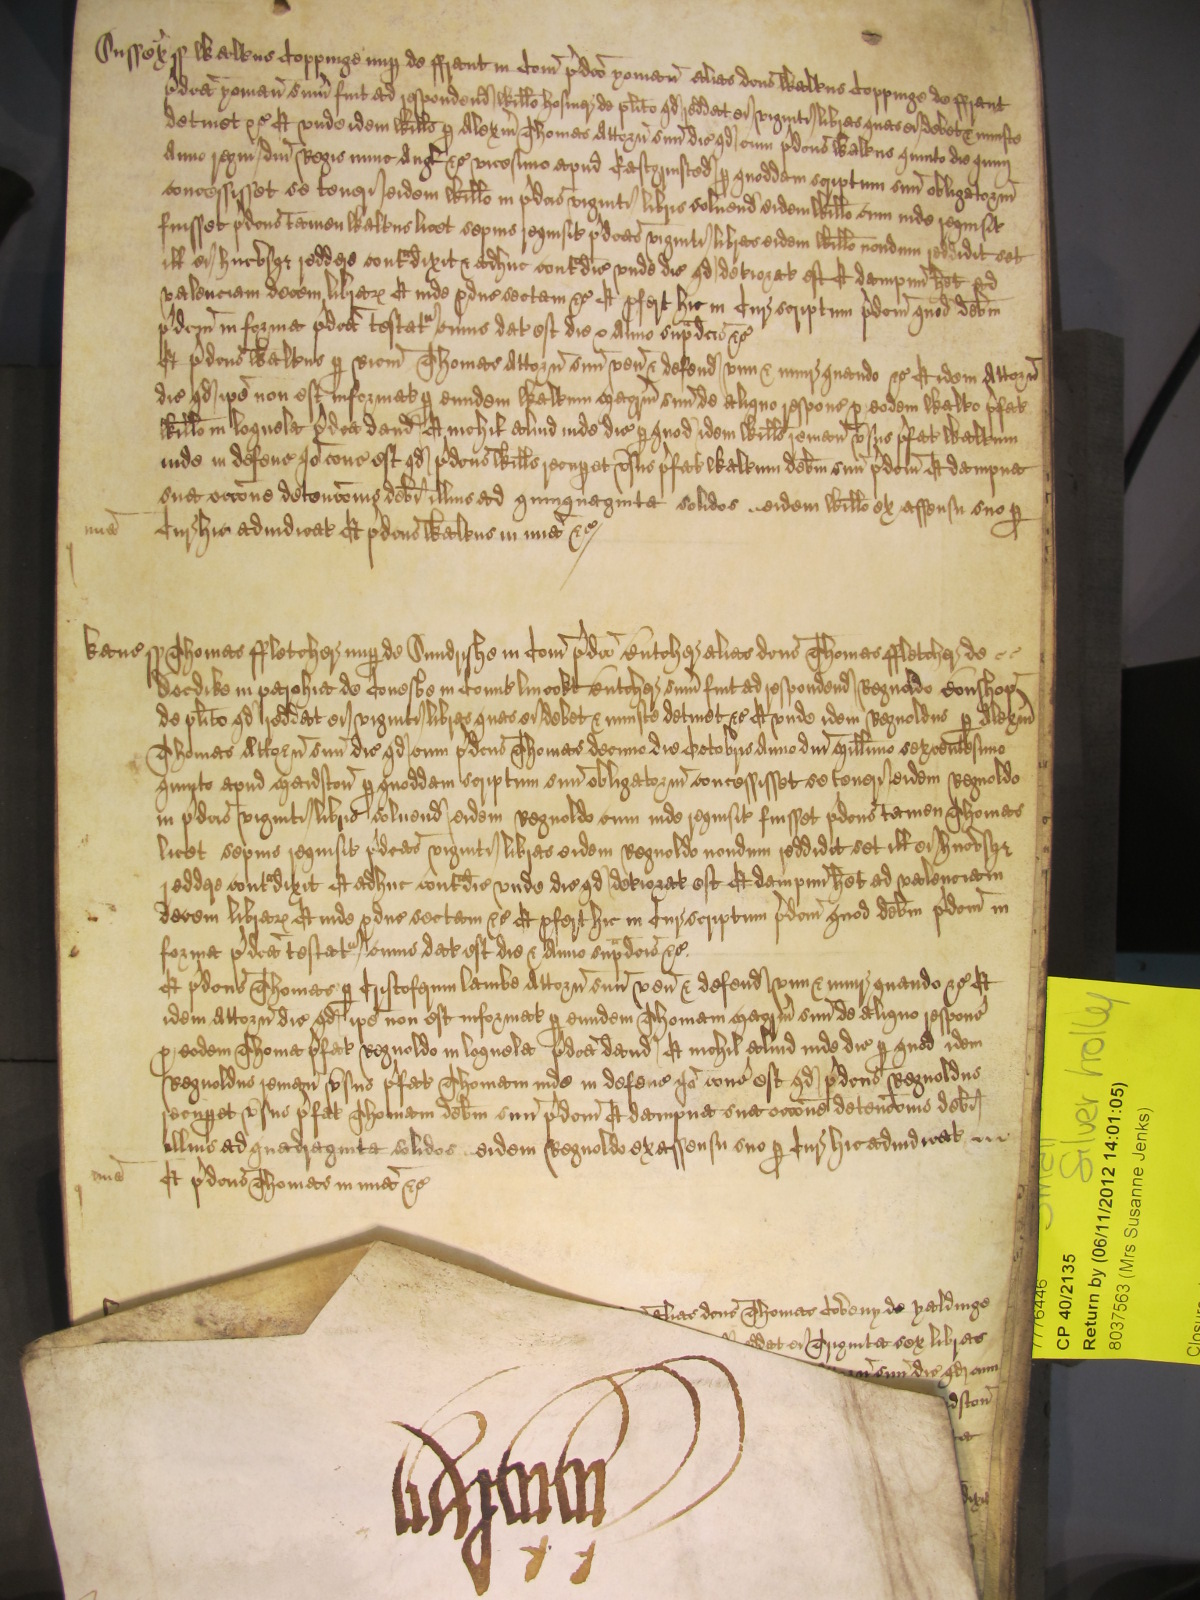 Sussex ss Walterus Coppinge nup de ffrant in Com p̄dco yoman alias dcus Walterus Coppinge de ffrant
p̄dca yoman sum fuit ad respondend Willo de plito qd reddat ei viginti libras quas ei debet & iniuste
detinet &c Et unde idem Willus p Alexm Thomas Attorn suu dic qd cum p̄dcus Walterus quinto die Junij
Anno regni dni Regis nunc Angl &c vicesimo apud Estgrinsted p quoddam scriptum suu obligatorm
concessisset se teneri eidem Willo in p̄dcis viginti libris solvend eidem Willo cum inde requisit
fuisset p̄dcus tamen Walterus licet sepius requisit p̄dcas viginti libras eidem Willo nondum reddidit set
ill ei hucusqz reddere contdixit & adhuc contdic unde dic qd deteriorat est Et dampnum het ad
valenciam decem librarz Et inde pduc sectam &c Et pfert hic in Cur scriptum p̄dcm quod debm
p̄dcm in forma p̄dca testatr cuius dat est die & Anno sup̄dcis &c
Et p̄dcus Walterus p Ricm Thomas Attorn suu ven & defend vim & iniur quando &c Et idem Attorn
dic qd ip̄e non est informat p eundem Walterum magrm suu de aliquo respons p eodem Waltero p̄fat
Willo in loquela p̄dca dand Et nichil aliud inde dic p quod idem Willus reman vsus p̄fat Walterum
inde in defens Io cons est qd p̄dcus Willus recuperet vsus p̄fat Walterum debm suu p̄dcm Et dampna
sua occone detencionis debi illius ad quinquaginta solidos eidem Willo ex assensu suo p
mia Cur hic adiudicat Et p̄dcus Walterus in mia &c
Kanc ss Thomas ffletcher nup de Sundrishe in Com p̄dco Butcher alias dcus Thomas ffletcher de
in parochia de in Comit Lincoln Butcher sum fuit ad respondend Reginoldo
de plito qd reddat ei viginti libras quas ei debet & iniuste detinet &c Et unde idem Reginoldus p Alexm
Thomas Attorn suu dic qd cum p̄dcus Thomas decimo die Octobris Anno dni millimo sexcentesimo
quinto apud Maidston p quoddam scriptum suu obligatorm concessisset se teneri eidem Reginoldo
in p̄dcis viginti libris solvend eidem Reginoldo cum inde requisit fuisset p̄dcus tamen Thomas
licet sepius requisit p̄dcas viginti libras eidem Reginoldo nondum reddidit set ill ei hucusqz
reddere contdixit Et adhuc contdic unde dic qd deteriorat est Et dampnum het ad valenciam
decem librarz Et inde pduc sectam &c Et pfert hic in Cur scriptum p̄dcm quod debm p̄dcm in
forma p̄dca testatr cuius dat est die & Anno sup̄dcis &c
Et p̄dcus Thomas p Cristoferum Lambe Attorn suu ven & defend vim & iniur quando &c Et
idem Attorn dic qd ip̄e non est informat p eundem Thomam magrm suu de aliquo respons
p eodem Thoma p̄fat Reginoldo in loquela p̄dca dand Et nichil aliud inde dic p quod idem
Reginoldus reman vsus p̄fat Thomam inde in defens Io cons est qd p̄dcus Reginoldus
recuperet vsus p̄fat Thomam debm suu p̄dcm Et dampna sua occone detencionis debi
illius ad quadraginta solidos eidem Reginoldo ex assensu suo p Cur hic adiudicat
mia Et p̄dcus Thomas in mia &c
alias dcus Thomas de Yaldinge
reddat ei Triginta sex libras
suu dic qd cum
Silver trolly
CP 40/2135
Return by (06/11/2012 14:01:05)
8037563 (Mrs Susanne Jenks)